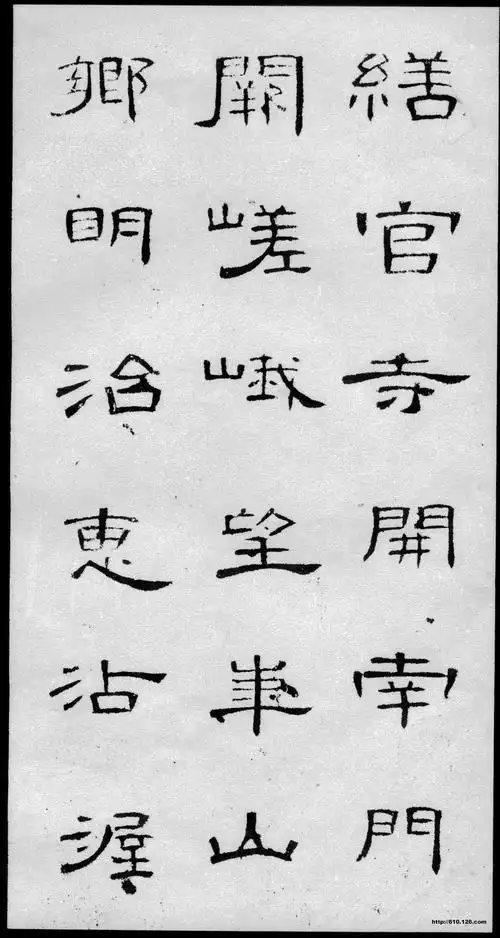 繕官寺開南門
闕嵯峨望華山
鄉明治惠沾渥
http://610.126.com